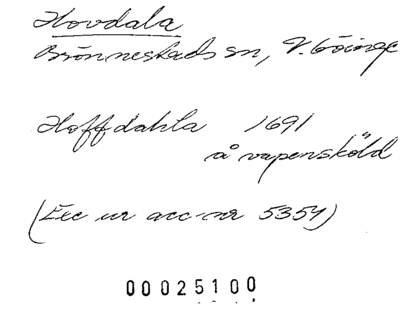 Hovdala
Brönnestads sn, V. Göinge
Hoffdahla 1691
å vapensköld
(Exc ur acc-nr 5354)
00025100